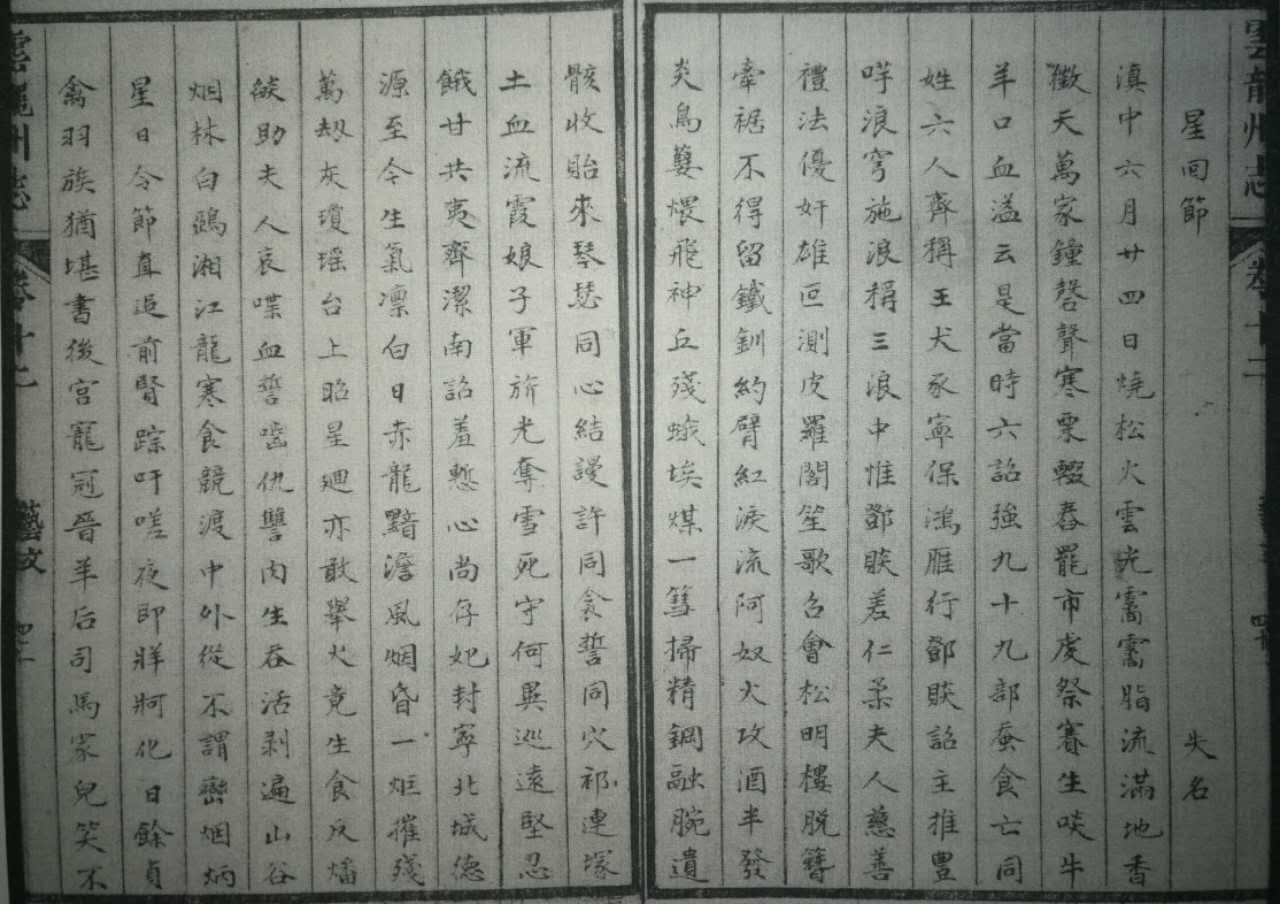 雲龍州志 卷十二
星回節 失名
滇中六月廿四日燒松火雲光靄靄脂流滿地香
徹天萬家鐘磬聲寒栗輟舂罷市虔祭賽生啖牛
羊口血溢云是當時六詔強九十九部蚕食亡同
姓六人齊稱王犬豕寧保鴻雁行鄧賧詔主推豊
哶浪穹施浪稱三浪中惟鄧賧差仁柔夫人慈善
禮法優奸雄叵測皮羅閣笙歌召會松明樓脱簪
牽裾不得留鐵釧約臂紅淚流阿奴火攻酒半發
炎鳥嬰煨飛神丘殘蛾埃煤一篲掃精鋼融腕遺
骸收貽來琴瑟同心結謾許同衾誓同穴祁連塚
土血流霞娘子軍旅光奪雪死守何異巡遠堅忍
餓甘共夷齊潔南詔羞慙心尚存妃封寧北城德
源至今生氣凛白日赤龍黯澹風烟昏一炬摧殘
萬刼灰瓊瑶台上昭星廻亦敢舉火竟生食反燔
燄助夫人哀喋血誓噬仇讐肉生吞活剥遍山谷
烟林白鵶湘江龍寒食競渡中外從不謂巒烟炳
星日令節直追前賢踪吁嗟夜郎牂牁化日餘貞
禽羽族猶堪書後宫寵冠晉羊后司馬家兒笑不
雲龍州志 卷十二 藝文